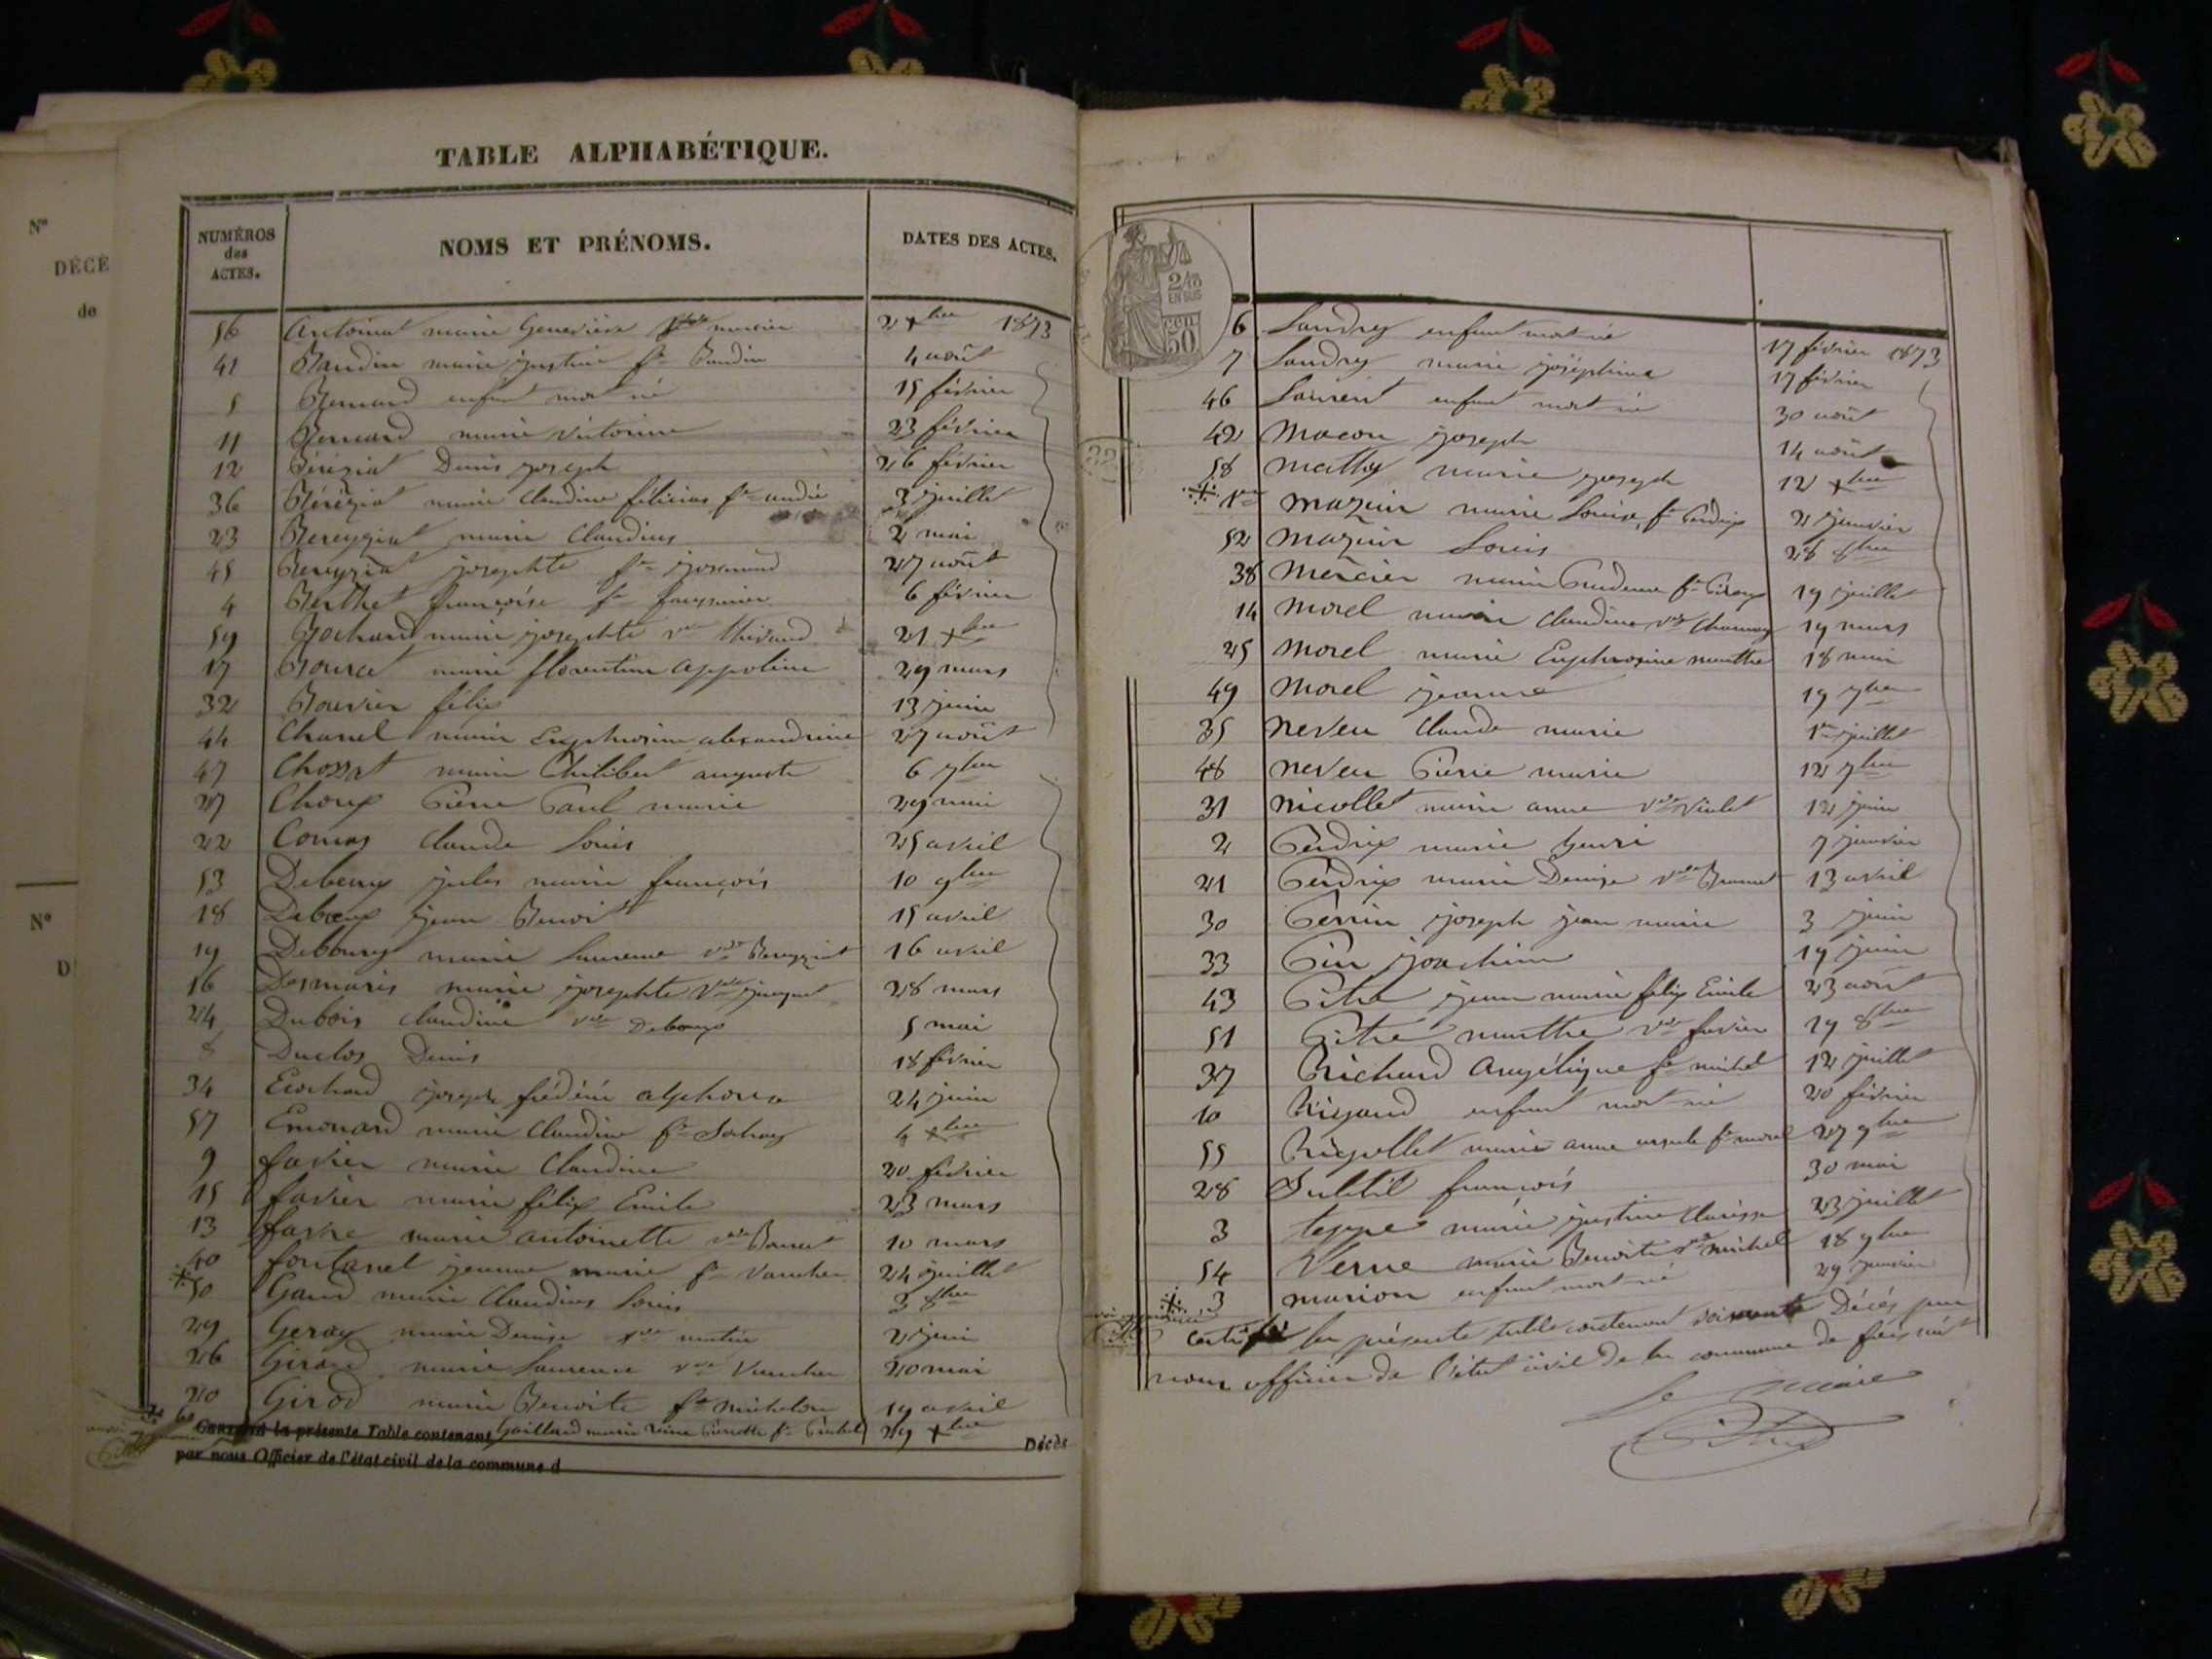 N°
DÉCÈ
de
N°
D
TABLE ALPHABÉTIQUE.
NUMÉROS des ACTES. NOMS ET PRÉNOMS. DATES DES ACTES.
56 Antoinat marie Geneviève mercier 2 xbre 1873
41 Baudin marie justine fe Baudin 4 août
5 Bernard enfant mort né 15 février
11 Bernard marie victorine 23 février
12 Béréziat Denis joseph 26 février
36 Béréziat marie Claudine félicias fe andré 3 juillet
23 Bereyziat marie Claudius 2 mai
45 Bereyziat josephte fe josserand 27 août
4 Berthet françoise fe 6 février
59 Bochard marie josephte vve thivaud 21 xbre
17 Bourcet marie florentine appoline 29 mars
32 Bouvier félix 13 juin
44 Chanel marie Euphrosine alexandrine 27 août
47 Chossat marie Philibert auguste 6 7bre
27 Choux Pierre Paul marie 29 mai
22 Comas Claude Louis 25 avril
53 Debeux jules marie françois 10 9bre
18 Debeux jean Benoit 15 avril
19 Debourg marie Laurence vve Bereyziat 16 avril
16 Desmaris marie josephte Vve jacquet 28 mars
24 Dubois claudine vve Deboux 5 mai
8 Duclos Denis 18 février
34 Ecochard joseph frédéric alphonse 24 juin
57 Emonard marie Claudine fe Sochay 4 xbre
9 favier marie Claudine 20 février
15 favier marie félix Emile 23 mars
13 favre marie antoinette vve Bourcet 10 mars
40 fontanel jeanne marie fe Vaucher 24 juillet
50 Gand marie Claudius Louis 3 8bre
29 Geray marie Denise vve 2 juin
26 Giraud marie Laurence vve Vaucher 20 mai
20 Girod marie Benoite fe michelon 19 avril
60 Gaillard marie Reine Pierrette fe 29 xbre
Certifié la présente Table contenant Décès
par nous Officier de l'état civil de la commune d
2/10
EN SUS
50
CEN
6 Landrey enfant mort né 17 février 1873
7 Landrey marie joséphine 17 février
46 Laurent enfant mort né 30 août
42 Macon joseph 14 août
58 Mathy marie joseph 12 xbre
1er Mazuir marie Louise fe Perdrix 2 janvier
52 Mazuir Louis 28 8bre
38 Mercier marie Prudence fe 19 juillet
14 Morel marie Claudine vve 19 mars
25 Morel marie Euphrosine marthe 18 mai
49 Morel jeanne 19 7bre
35 Neveu Claude marie 1er juillet
48 Neveu Pierre marie 12 7bre
31 Nicollet marie anne Vve Violet 12 juin
2 Perdrix marie henri 7 janvier
21 Perdrix marie Denise vve 13 avril
30 Perrin joseph jean marie 3 juin
33 Pin joachim 19 juin
43 Pitre jean marie félix Emile 23 août
51 Pitre marthe vve favier 19 8bre
37 Richard Angélique fe michel 12 juillet
10 Rigaud enfant mort né 20 février
55 Rigollet marie anne ursule fe morel 27 9bre
28 Subtil françois 30 mai
3 teppe marie justine Clarisse 23 juillet
54 Verne marie Benoite vve michel 18 9bre
3 marion enfant mort né 29 janvier
Certifié la présente table contenant soixante Décès par
nous officier de l'état civil de la commune de
Le Maire